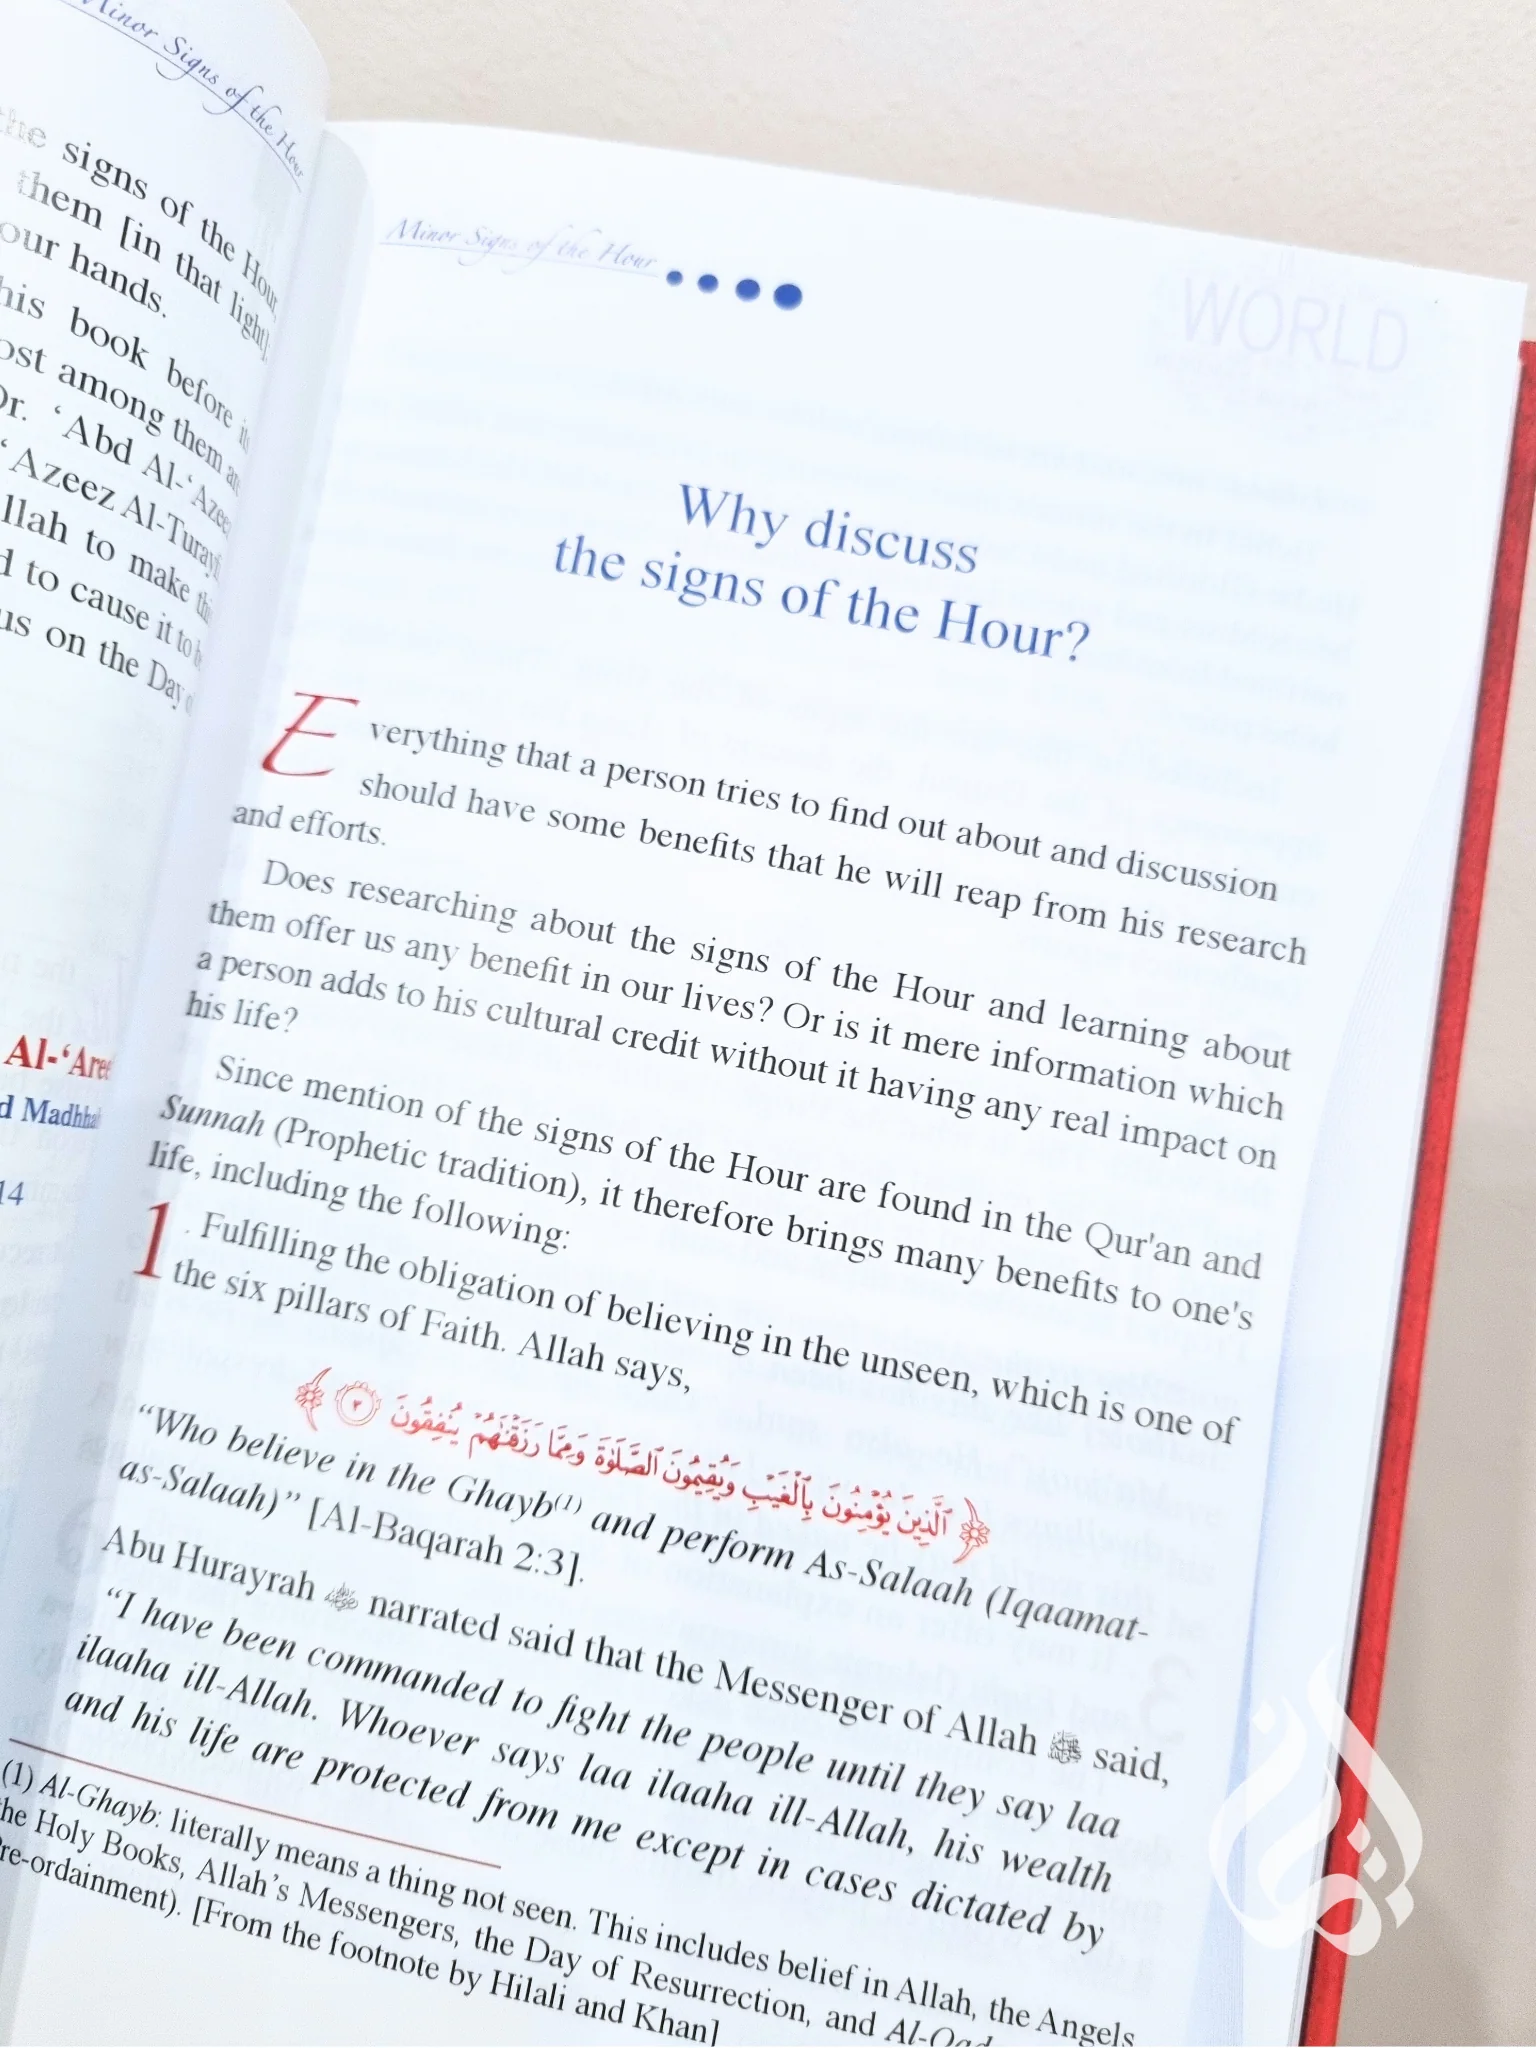 Minor Signs of the Hour
the signs of the Hour,
them [in that light].
our hands.
his book before
among them are
Dr. ‘Abd Al-‘Azeez
‘Azeez Al-Turayfi
to make this
to cause it to
us on the Day of
Al-‘
Madhhab
14
Minor Signs of the Hour
WORLD
Why discuss
the signs of the Hour?
Everything that a person tries to find out about and discussion
should have some benefits that he will reap from his research
and efforts.
Does researching about the signs of the Hour and learning about
them offer us any benefit in our lives? Or is it mere information which
a person adds to his cultural credit without it having any real impact on
his life?
Since mention of the signs of the Hour are found in the Qur'an and
Sunnah (Prophetic tradition), it therefore brings many benefits to one's
life, including the following:
1. Fulfilling the obligation of believing in the unseen, which is one of
the six pillars of Faith. Allah says,
﴿ ٱلَّذِينَ يُؤْمِنُونَ بِٱلْغَيْبِ وَيُقِيمُونَ ٱلصَّلَوٰةَ وَمِمَّا رَزَقْنَٰهُمْ يُنفِقُونَ ٣ ﴾
“Who believe in the Ghayb(1) and perform As-Salaah (Iqaamat-
as-Salaah)” [Al-Baqarah 2:3].
Abu Hurayrah narrated said that the Messenger of Allah ﷺ said,
“I have been commanded to fight the people until they say laa
ilaaha ill-Allah. Whoever says laa ilaaha ill-Allah, his wealth
and his life are protected from me except in cases dictated by
(1) Al-Ghayb: literally means a thing not seen. This includes belief in Allah, the Angels
the Holy Books, Allah’s Messengers, the Day of Resurrection, and
Pre-ordainment). [From the footnote by Hilali and Khan]